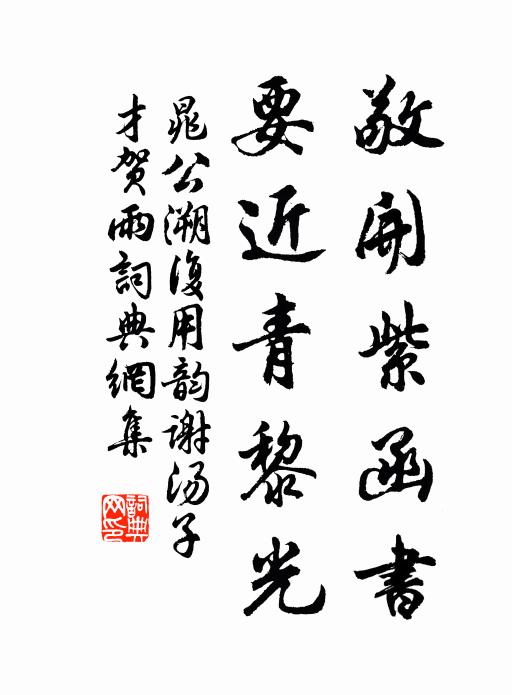 敬開紫函書
要近青黎光
晁公溯復用韵谢汤子
才贺雨詞典網集
詞典网印